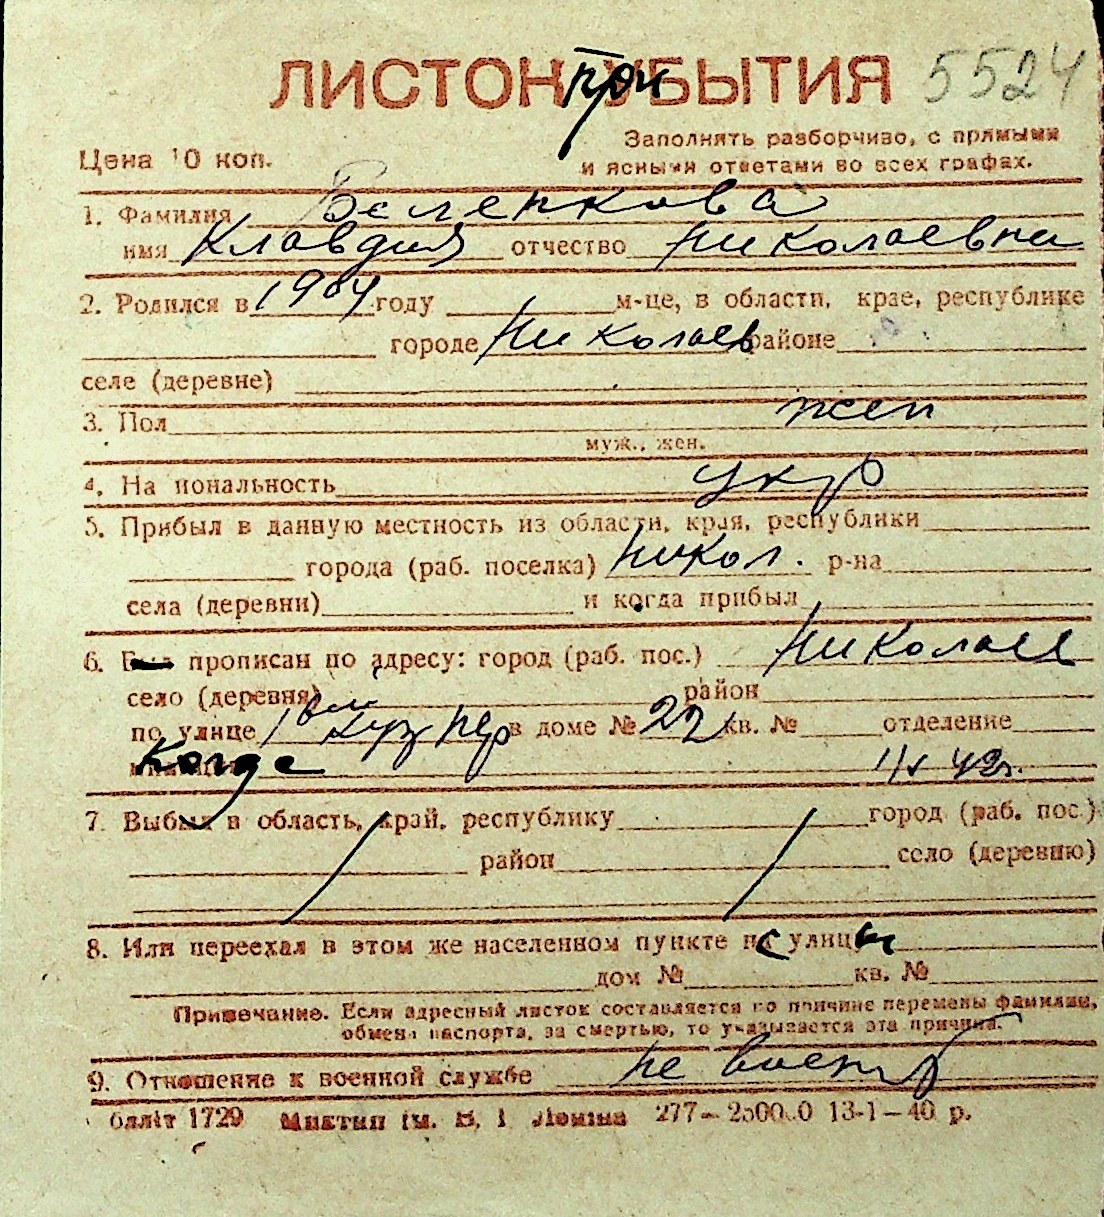 ЛИСТОК при УБЫТИЯ 5524
Заполнять разборчиво, с прямыми
Цена 10 коп. и ясными ответами во всех графах.
1. Фамилия Беленкова
имя Клавдия отчество Николаевна
2. Родился в 1904 году м-це, в области, крае, республике
городе Николаев районе
селе (деревне)
3. Пол жен
муж., жен.
4. Национальность укр
5. Прибыл в данную местность из области, края, республики
города (раб. поселка) Никол. р-на
села (деревни) и когда прибыл
6. прописан по адресу: город (раб. пос.) Николаев
село (деревня) район
по улице в доме № 22 кв. № отделение
Когда
7. Выбыл в область, край, республику город (раб. пос.)
район село (деревню)
8. Или переехал в этом же населенном пункте с улицы
дом № кв. №
Примечание. Если адресный листок составляется по причине перемены фамилии,
обмена паспорта, за смертью, то указывается эта причина.
9. Отношение к военной службе не военнооб
1729 277— 13-1—40 р.